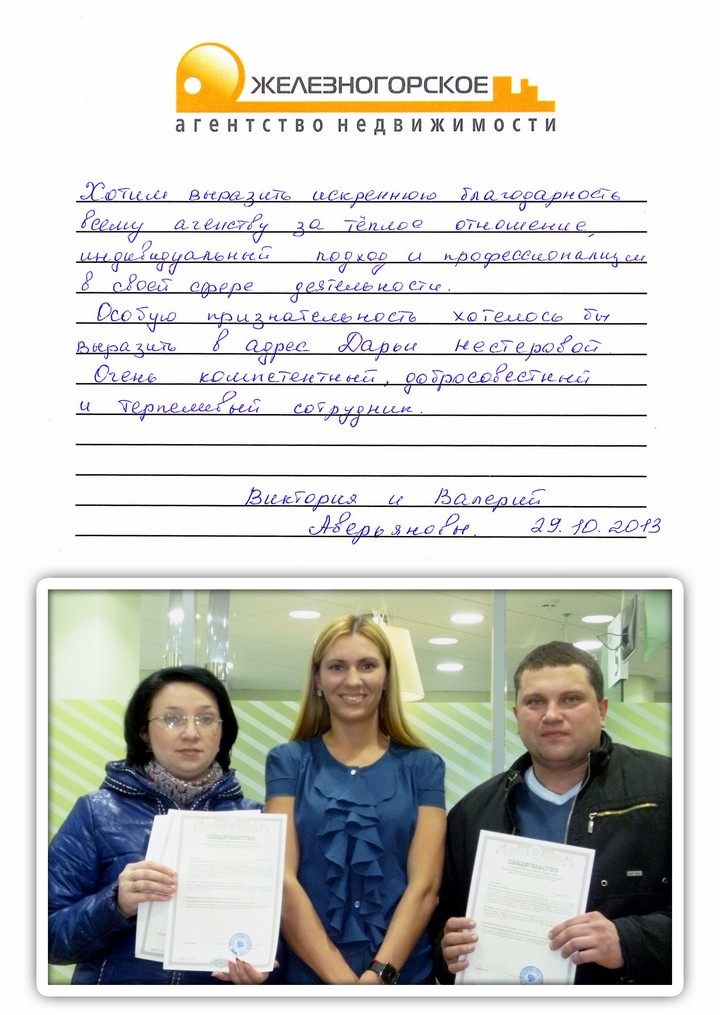 ЖЕЛЕЗНОГОРСКОЕ
агентство недвижимости
Хотим выразить искреннюю благодарность
всему агенству за тёплое отношение,
индивидуальный подход и профессионализм
в своей сфере деятельности.
Особую признательность хотелось бы
выразить в адрес Дарьи Нестеровой.
Очень компетентный, добросовестный
и терпеливый сотрудник.
Виктория и Валерий
Аверьяновы. 29.10.2013
СВИДЕТЕЛЬСТВО
СВИДЕТЕЛЬСТВО